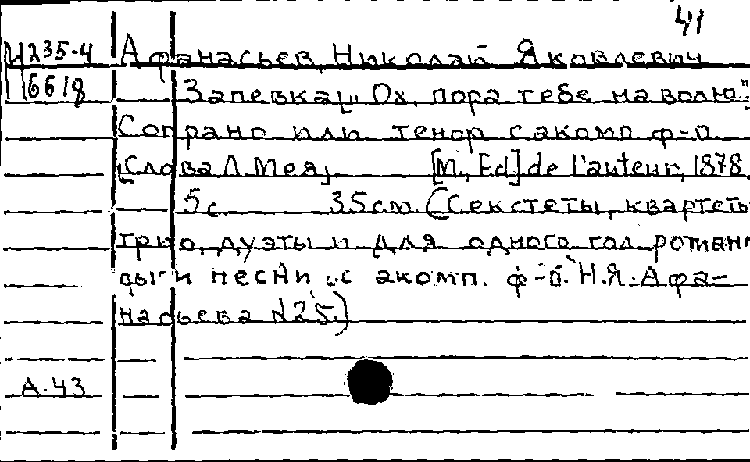 41
М235-4 Афанасьев, Николай Яковлевич
6618 Запевка [„Ох, пора тебе на волю"].
Сопрано или тенор с акомп. ф-п.
[Слова Л. Мея]. [М., Ed] de l'auteur, 1878.
5 с. 35 см. (Секстеты, квартеты,
трио, дуэты и для одного гол. роман-
сы и песни с акомп. ф-п. Н.Я. Афа-
насьева №25.)
А-43